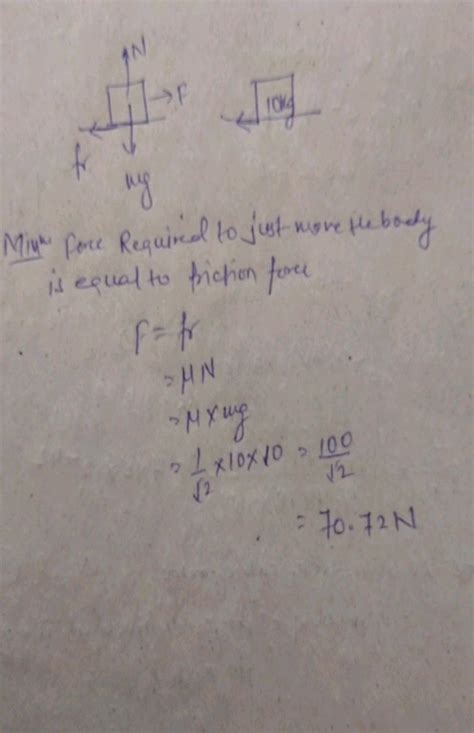 N
F
10kg
fr
mg
Minm force Required to just move the body
is equal to friction force
F = fr
= μN
= μ×mg
= 1/√2 ×10×10 = 100/√2
= 70.72N